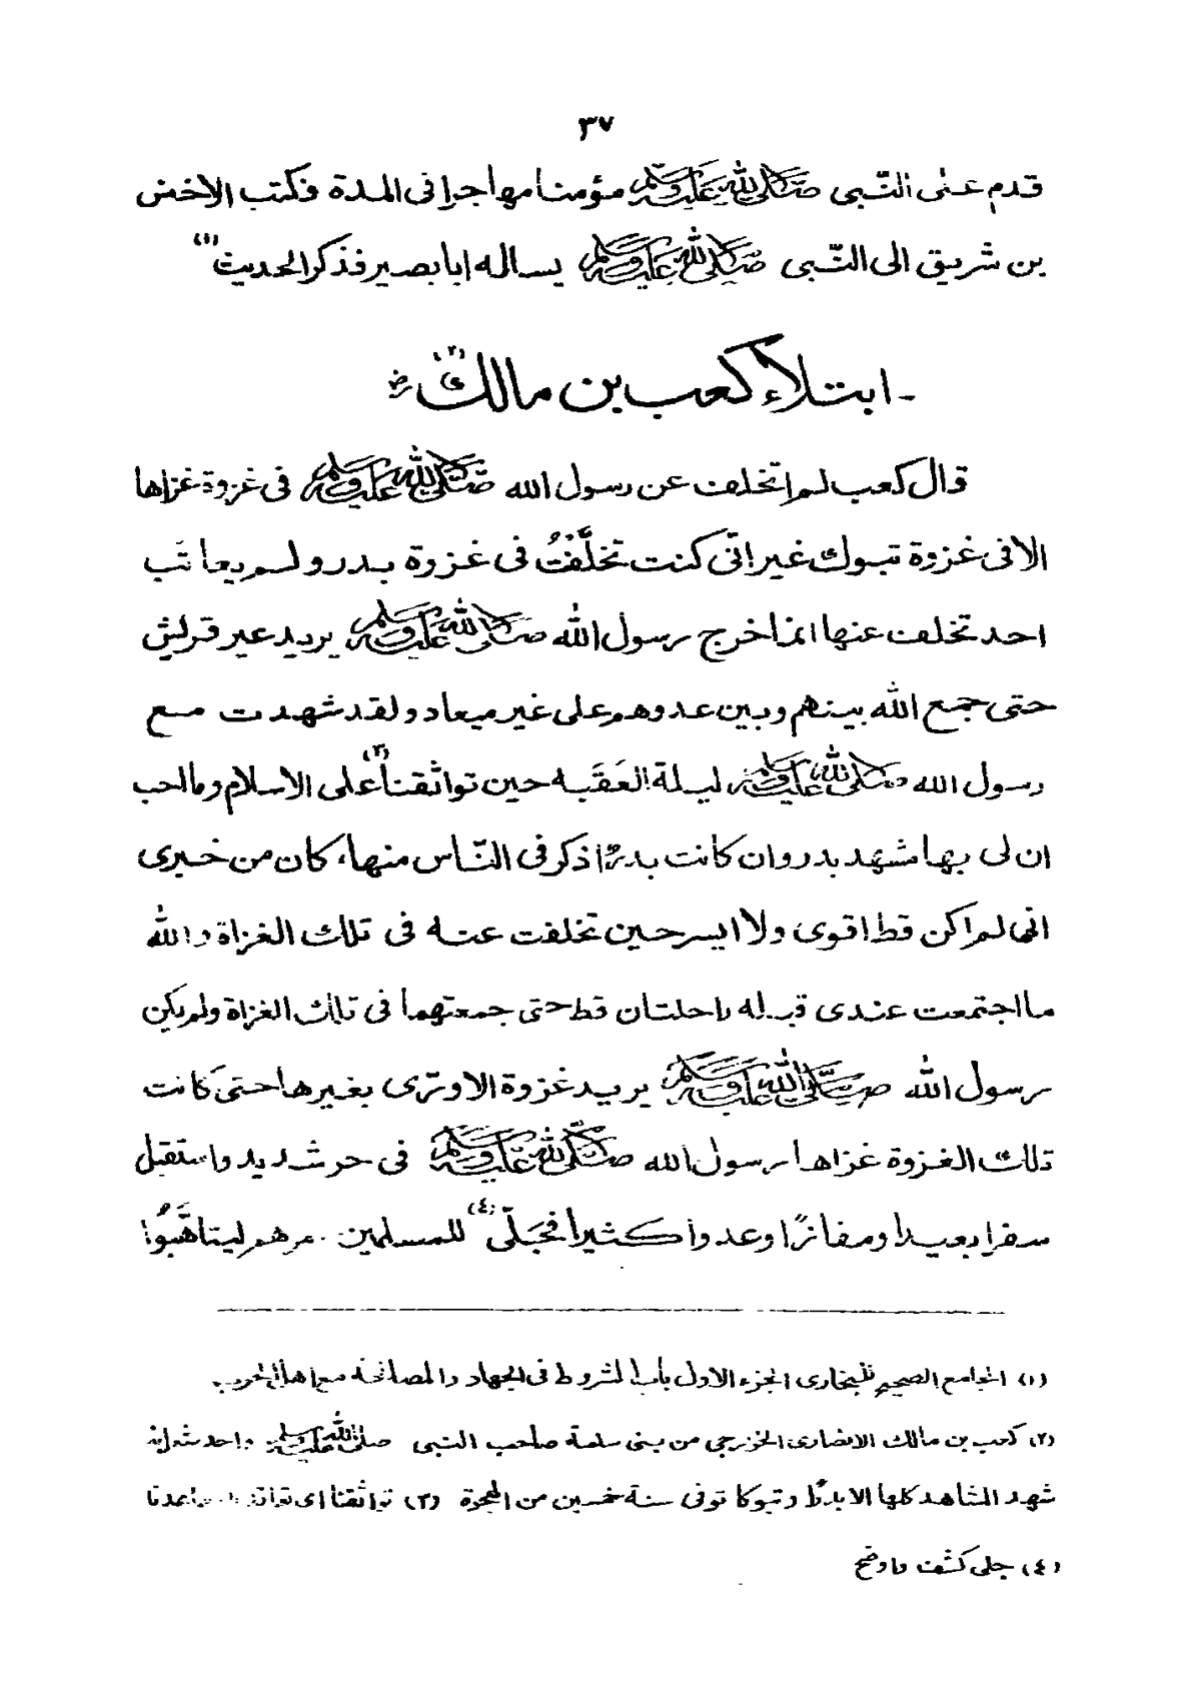 ٣٧
قدم على النّبى صلى الله عليه وسلم مؤمنا مهاجرا فى المدة فكتب الاخنس
بن شريق الى النّبى صلى الله عليه وسلم يساله ابا بصير فذكر الحديث (١)
ـ ابتلاء كعب بن مالك رض (٢)
قال كعب لم اتخلف عن رسول الله صلى الله عليه وسلم فى غزوة غزاها
الا فى غزوة تبوك غير انّى كنت تخلَّفتُ فى غزوة بدر ولم يعاتَب
احد تخلف عنها انما خرج رسول الله صلى الله عليه وسلم يريد عير قريش
حتى جمع الله بينهم وبين عدوهم على غير ميعاد ولقد شهدت مع
رسول الله صلى الله عليه وسلم ليلة العَقَبه حين تواثقنا (٣) على الاسلام وما احب
ان لى بها مشهد بدر وان كانت بدرٌ اذكر فى النّاس منها، كان من خبرى
انى لم اكن قط اقوى ولا ايسر حين تخلفت عنه فى تلك الغزاة والله
ما اجتمعت عندى قبله راحلتان قط حتى جمعتهما فى تلك الغزاة ولم يكن
رسول الله صلى الله عليه وسلم يريد غزوة الا ورّى بغيرها حتى كانت
تلك الغزوة غزاها رسول الله صلى الله عليه وسلم فى حر شديد واستقبل
سفرا بعيدا ومفازًا وعدوا كثيرا فجَلّى (٤) للمسلمين مرهم ليتاهَّبُوا
(١) الجامع الصحيح للبخارى الجزء الاول باب الشروط فى الجهاد والمصالحة مع اهل الحرب
(٢) كعب بن مالك الانصارى الخزرجى من بنى سلمة صاحب النبى صلى الله عليه وسلم واحد شعرائه
شهد المشاهد كلها الا بدرًا وتبوكا توفى سنة خمسين من الهجرة (٣) تواثقنا اى تعاقدنا وتعاهدنا
(٤) جلى كشف واوضح